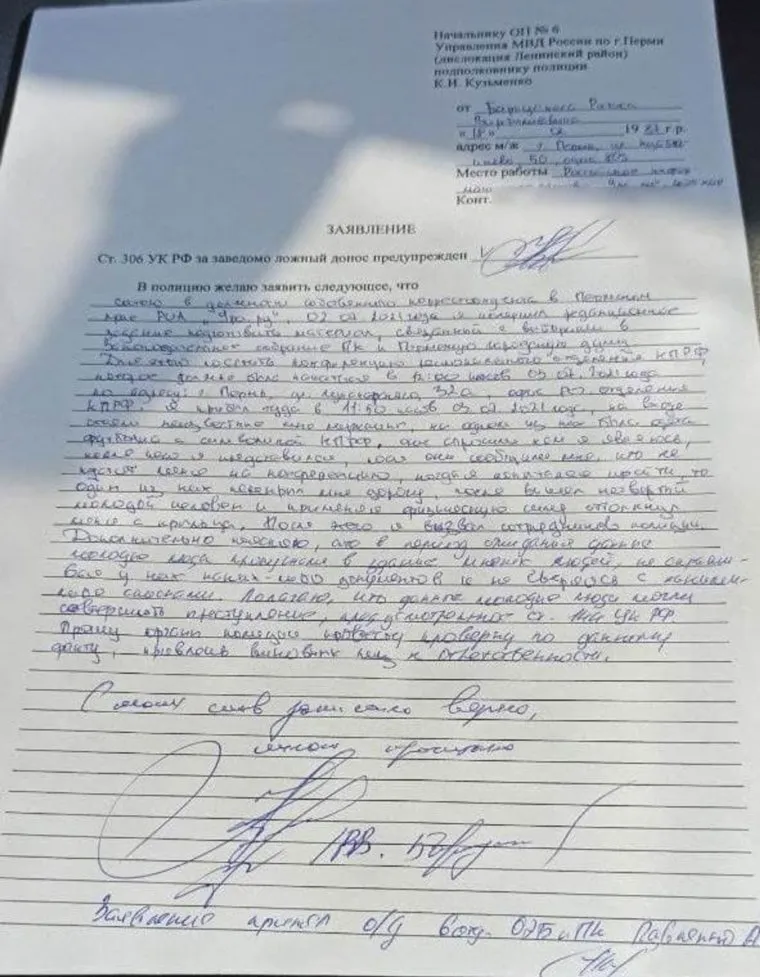 Начальнику ОП № 6
Управления МВД России по г.Перми
(дислокация Ленинский район)
подполковнику полиции
К.И. Кузьменко
от
« 18 » 19 г.р.
адрес м/ж г. Пермь, ул.
50, офис
Место работы
Конт.
ЗАЯВЛЕНИЕ
Ст. 306 УК РФ за заведомо ложный донос предупрежден
В полицию желаю заявить следующее, что
состою в должности собственного корреспондента в Пермском
крае РИА 2021 года я получил редакционное
задание подготовить материал, связанный с выборами в
Законодательное собрание ПК и Пермскую городскую думу.
посетить конференцию отделения КПРФ,
которое должно было начаться в 12:00 часов 03.07.2021 года
по адресу: г. Пермь, ул. 32а, офис отделения
КПРФ. Я прибыл туда в 11:50 часов 03.07.2021 года, на входе
неизвестные мне мужчины, на одном из них была одета
футболка с символикой КПРФ, спросили кем я являюсь,
после чего я представился, они сообщили мне, что не
пустят меня на конференцию, когда я попытался пройти, то
один из них перекрыл мне дорогу, после вышел
молодой человек и применяя физическую силу оттолкнул
меня с крыльца. После этого я вызвал сотрудников полиции.
Дополнительно поясняю, что в период ожидания данные
молодые люди пропускали в здание людей, не спраши-
вая у них каких-либо документов и не сверяясь с какими-
либо списками. Полагаю, что данные молодые люди могли
совершить преступление, предусмотренное ст. 144 УК РФ.
Прошу органы полиции провести проверку по данному
факту, привлечь виновных лиц к ответственности.
С моих слов записано верно,
мной прочитано
Заявление принял о/д